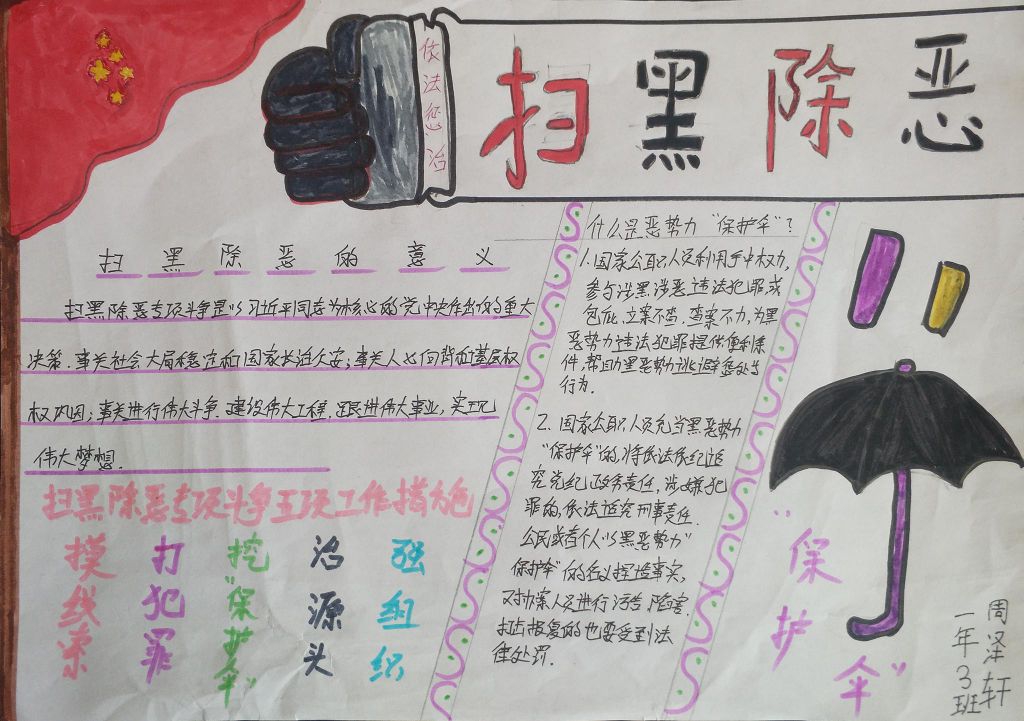 依法惩治
扫黑除恶
扫黑除恶的意义
扫黑除恶专项斗争是以习近平同志为核心的党中央作出的重大
决策.事关社会大局稳定和国家长治久安;事关人心向背和基层政
权巩固;事关进行伟大斗争.建设伟大工程.推进伟大事业,实现
伟大梦想.
扫黑除恶专项斗争五项工作措施
摸线索
打犯罪
挖"保护伞"
治源头
强组织
什么是恶势力"保护伞"?
1.国家公职人员利用手中权力,
参与涉黑涉恶违法犯罪或
包庇,立案不查.查案不力,为黑
恶势力违法犯罪提供便利条
件,帮助黑恶势力逃避惩处等
行为.
2.国家公职人员充当黑恶势力
"保护伞"的,将依法依纪追
究党纪政务责任,涉嫌犯
罪的,依法追究刑事责任.
公民或者个人"以黑恶势力"
保护伞"的名义捏造事实,
对办案人员进行诬告陷害.
打击报复的也要受到法
律处罚.
"保护伞"
一年3班
周泽轩